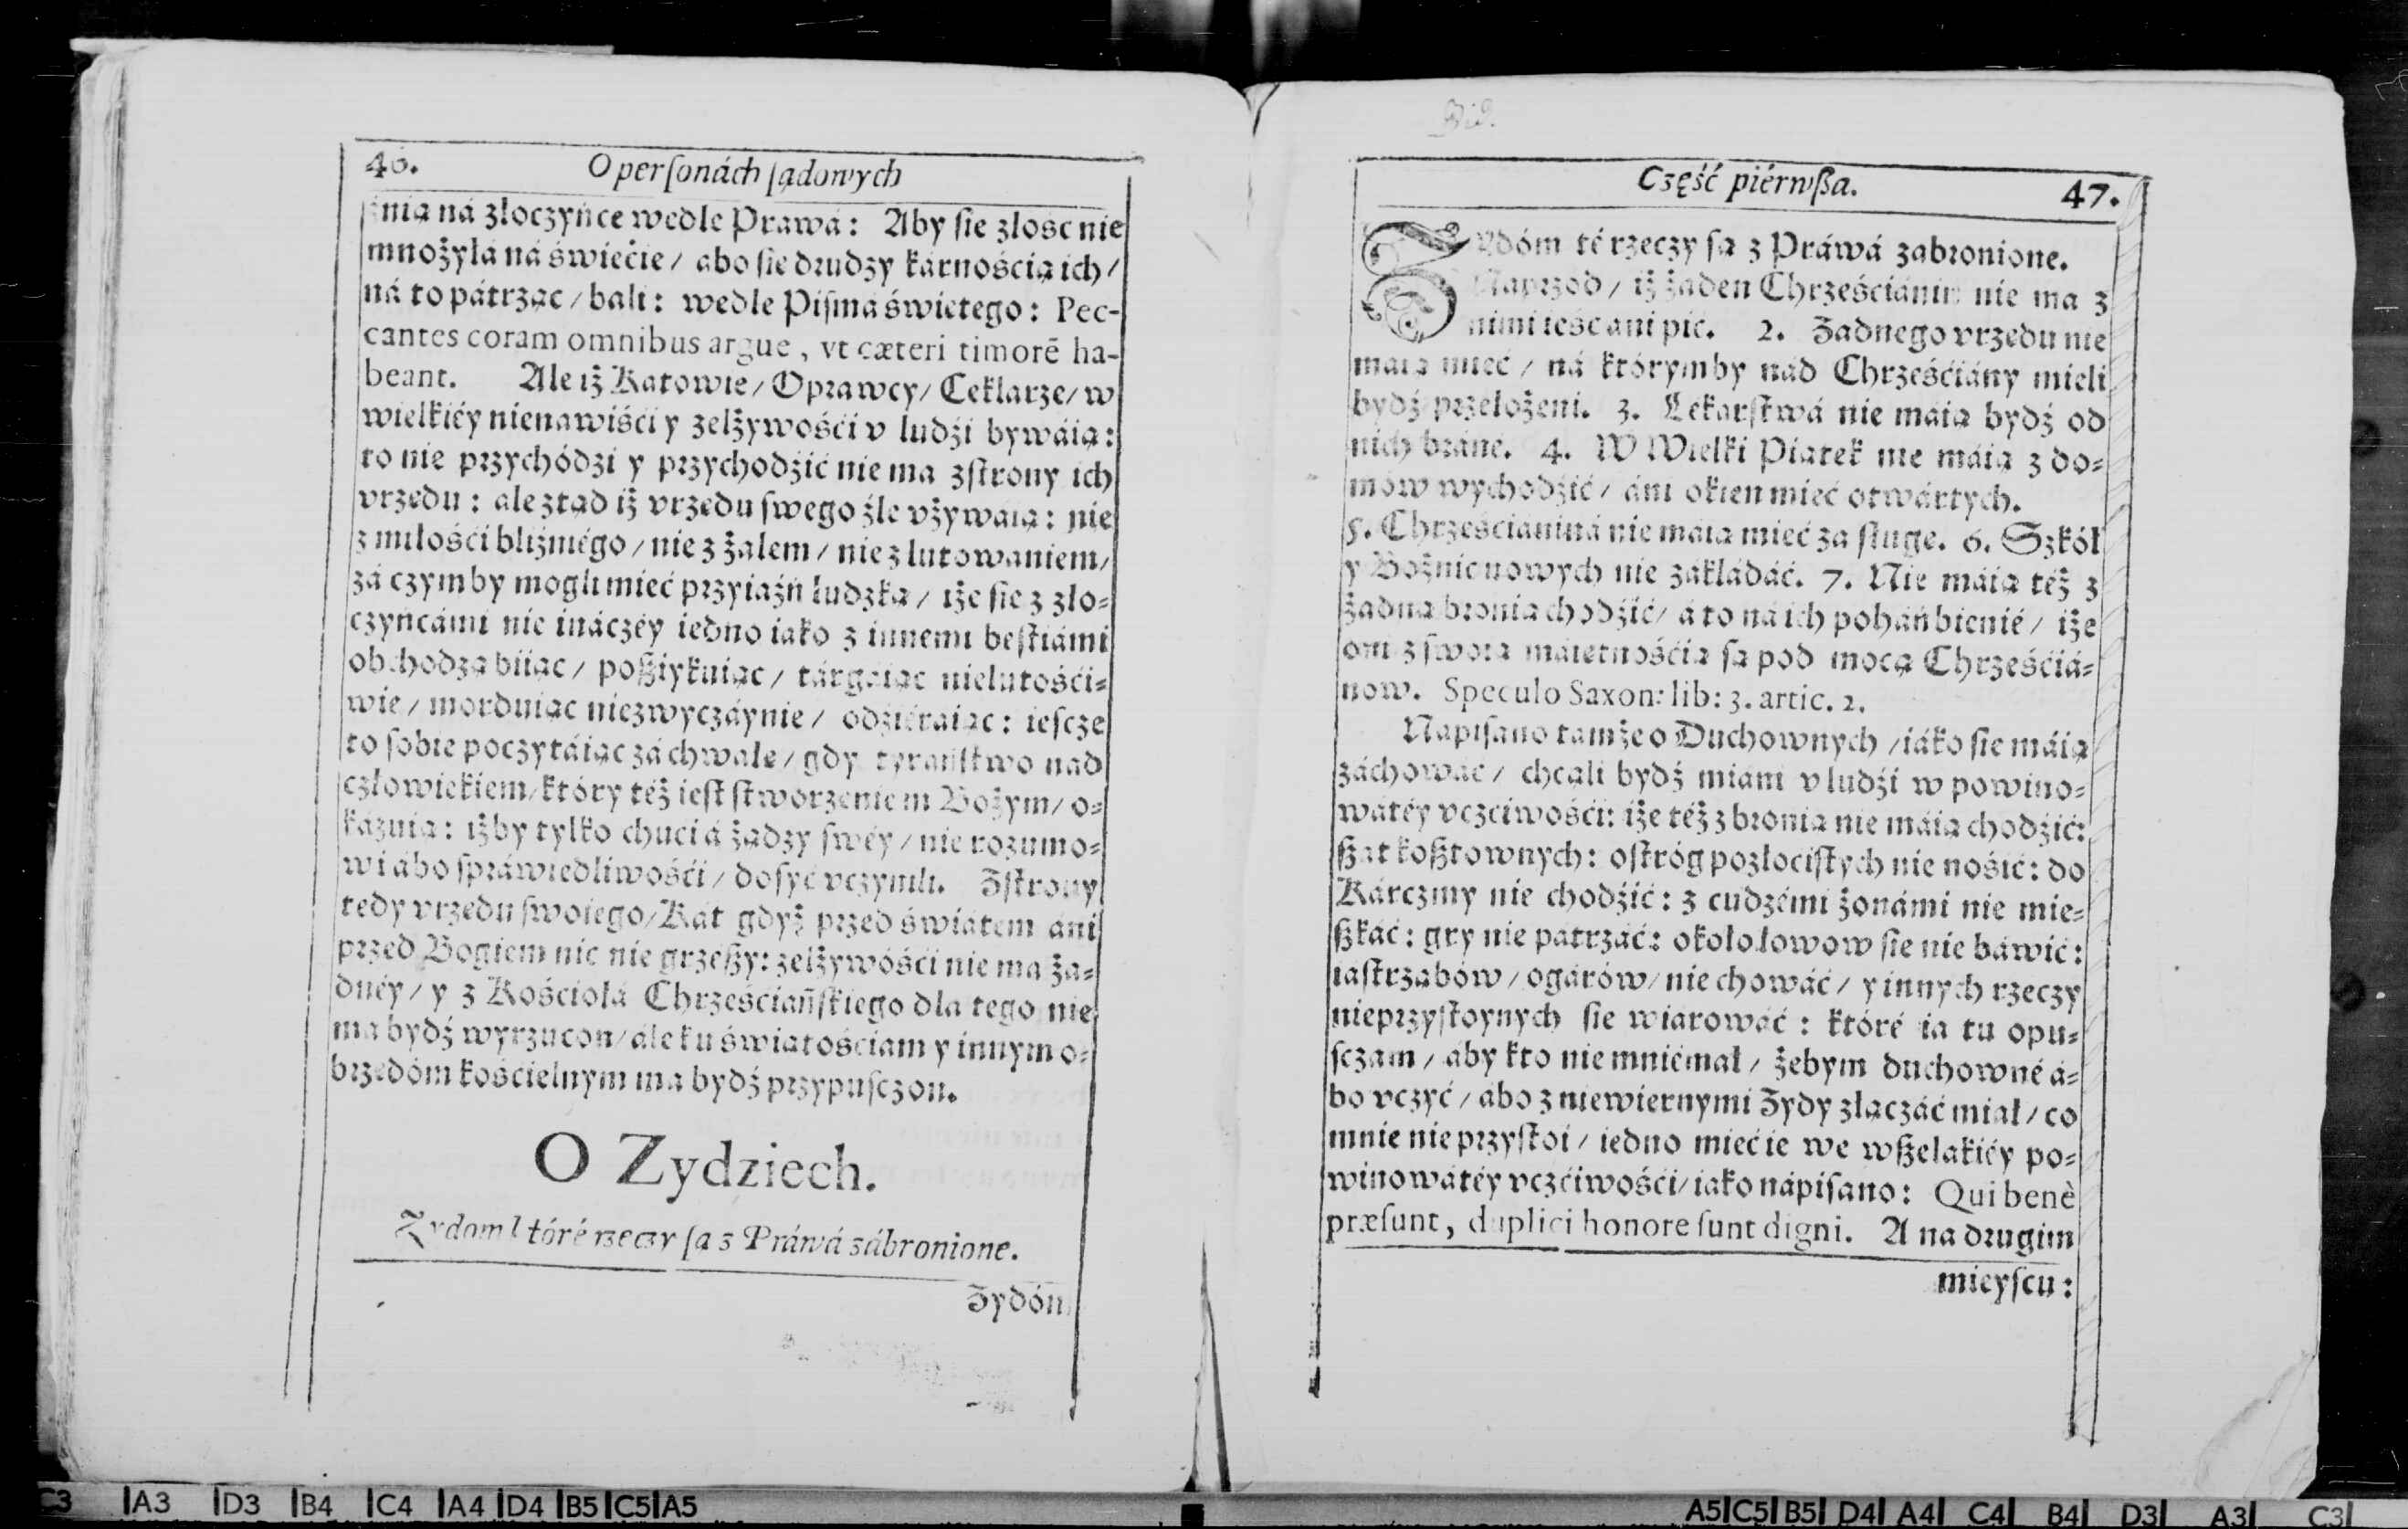 46. O perſonách ſądowych
żnią ná złoczyńce wedle Prawá: Aby ſie złość nie
mnożyłá ná świećie / abo ſie drudzy kárnością ich /
ná to pátrząc / bali: wedle Piſmá świetego: Pec-
cantes coram omnibus argue, vt cæteri timorē ha-
beant. Ale iż Katowie / Oprawcy / Ceklarze / w
wielkiéy nienawiśći y zelżywośći v ludźi bywáią:
to nie przychódzi y przychodźić nie ma zſtrony ich
vrzedu: ale ztąd iż vrzedu ſwego źle vżywáią: nie
z miłośći bliźniégo / nie z żalem / nie z lutowaniem /
zá czymby mogli mieć przyiaźń ludzką / iże ſie z zło-
czyńcámi nie ináczéy iedno iako z innemi beſtiámi
obchodzą biiąc / poßiykuiąc / tárgáiąc nielutośći-
wie / morduiąc niezwyczáynie / odźiéraiąc: ieſcze
to ſobie poczytáiąc zá chwałe / gdy tyrańſtwo nad
człowiekiem / który téż ieſt ſtworzeniem Bożym / o-
kázuią: iżby tylko chuci á żądzy ſwéy / nie rozumo-
wi ábo ſpráwiedliwośći / dosyć vczynili. Zſtrony
tedy vrzedu ſwoiego / Kát gdyż przed świátem áni
przed Bogiem nic nie grzeßy: zelżywóśći nie ma ża-
dnéy / y z Kośćiołá Chrześćiańſkiego dla tego nie
ma bydź wyrzucon / ále ku świątośćiam y innym o-
brzedóm kośćielnym ma bydź przypuſczon.
O Zydziech.
Zydom które rzeczy ſą z Práwá zábronione.
Żydóm
Część piérwßa. 47.
ŻYdóm té rzeczy ſą z Práwá zabronione.
Naprzod / iż żaden Chrześćiánin nie ma z
nimi ieść ani pić. 2. Żadnego vrzedu nie
maią mieć / ná którymby nád Chrześćiány mieli
bydź przełożeni. 3. Lekarſtwá nie máią bydź od
nich bráné. 4. W Wielki Piątek nie máią z do-
mow wychodźić / áni okien mieć otwártych.
5. Chrześćianiná nie máią mieć za ſługe. 6. Szkół
y Bożnic nowych nie zakłádáć. 7. Nie máią téż z
żadną bronią chodźić / á to ná ich poháńbienié / iże
oni z ſwoią máietnośćią ſą pod mocą Chrześćiá-
now. Speculo Saxon: lib: 3. artic. 2.
Napiſano tamże o Duchownych / iáko ſie máią
záchowáć / chcąli bydź miáni v ludźi w powino-
wátéy vczćiwośći: iże téż z bronią nie máią chodźić:
ßat koßtownych: oſtróg pozłociſtych nie nośić: do
Kárczmy nie chodźić: z cudzémi żonámi nie mie-
ßkáć: gry nie pátrzáć: około łowow ſie nie báwić:
iáſtrząbów / ogárów / nie chowáć / y innych rzeczy
nieprzyſtoynych ſie wiarowáć: któré ia tu opu-
ſczam / áby kto nie mniémał / żebym duchowné á-
bo vczyć / ábo z niewiernymi Żydy złączáć miał / co
mnie nie przyſtoi / iedno mieć ie we wßelakiéy po-
winowátéy vczćiwośći / iako nápiſano: Qui benè
præſunt, duplici honore ſunt digni. A na drugim
mieyſcu:
C3 A3 D3 B4 C4 A4 D4 B5 C5 A5
A5 C5 B5 D4 A4 C4 B4 D3 A3 C3